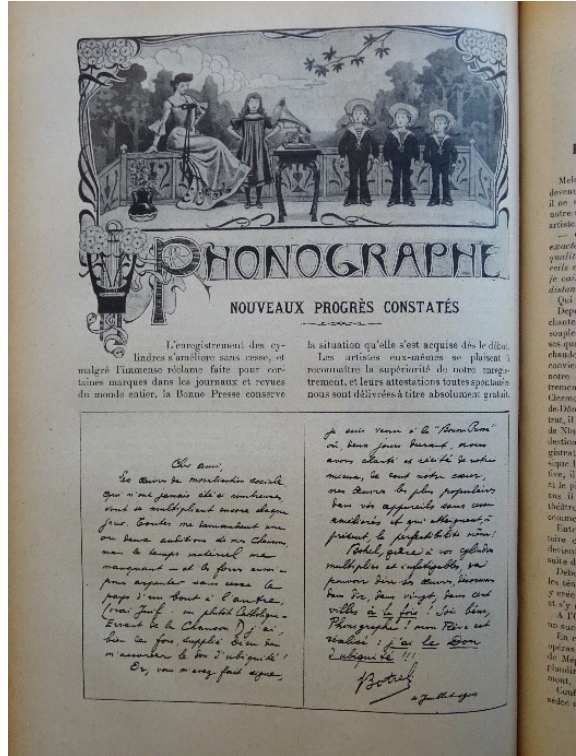 PHONOGRAPHE
NOUVEAUX PROGRÈS CONSTATÉS
L'enregistrement des cy-
lindres s'améliore sans cesse, et
malgré l'immense réclame faite pour cer-
taines marques dans les journaux et revues
du monde entier, la Bonne Presse conserve
la situation qu'elle s'est acquise dès le début.
Les artistes eux-mêmes se plaisent à
reconnaître la supériorité de notre enregis-
trement, et leurs attestations toutes spontanées
nous sont délivrées à titre absolument gratuit.
Cher ami,
Les œuvres de moralisation sociale
qui n'ont jamais été si nombreuses,
vont se multipliant encore chaque
jour. Toutes me demandent une
ou deux auditions de mes Chansons,
mais le temps matériel me
manquant — et les forces aussi —
pour arpenter sans cesse le
pays d'un bout à l'autre,
(vrai Juif ou plutôt Catholique-
Errant de la Chanson !) j'ai,
bien des fois, supplié Dieu de
m'accorder le don d'ubiquité !
Or, vous m'avez fait signe,
je suis venu à la "Bonne Presse"
où, deux jours durant, nous
avons chanté et récité de notre
mieux, de tout notre cœur,
nos œuvres les plus populaires
dans vos appareils sans cesse
améliorés et qui atteignent, à
présent, la perfectibilité même !
Botrel, grâce à vos cylindres
multipliés et infatigables, va
pouvoir dire ses œuvres, désormais
dans dix, dans vingt, dans cent
villes à la fois ! Sois béni,
Phonographe ! mon Rêve est
réalisé : j'ai le Don
d'ubiquité !!!
Botrel